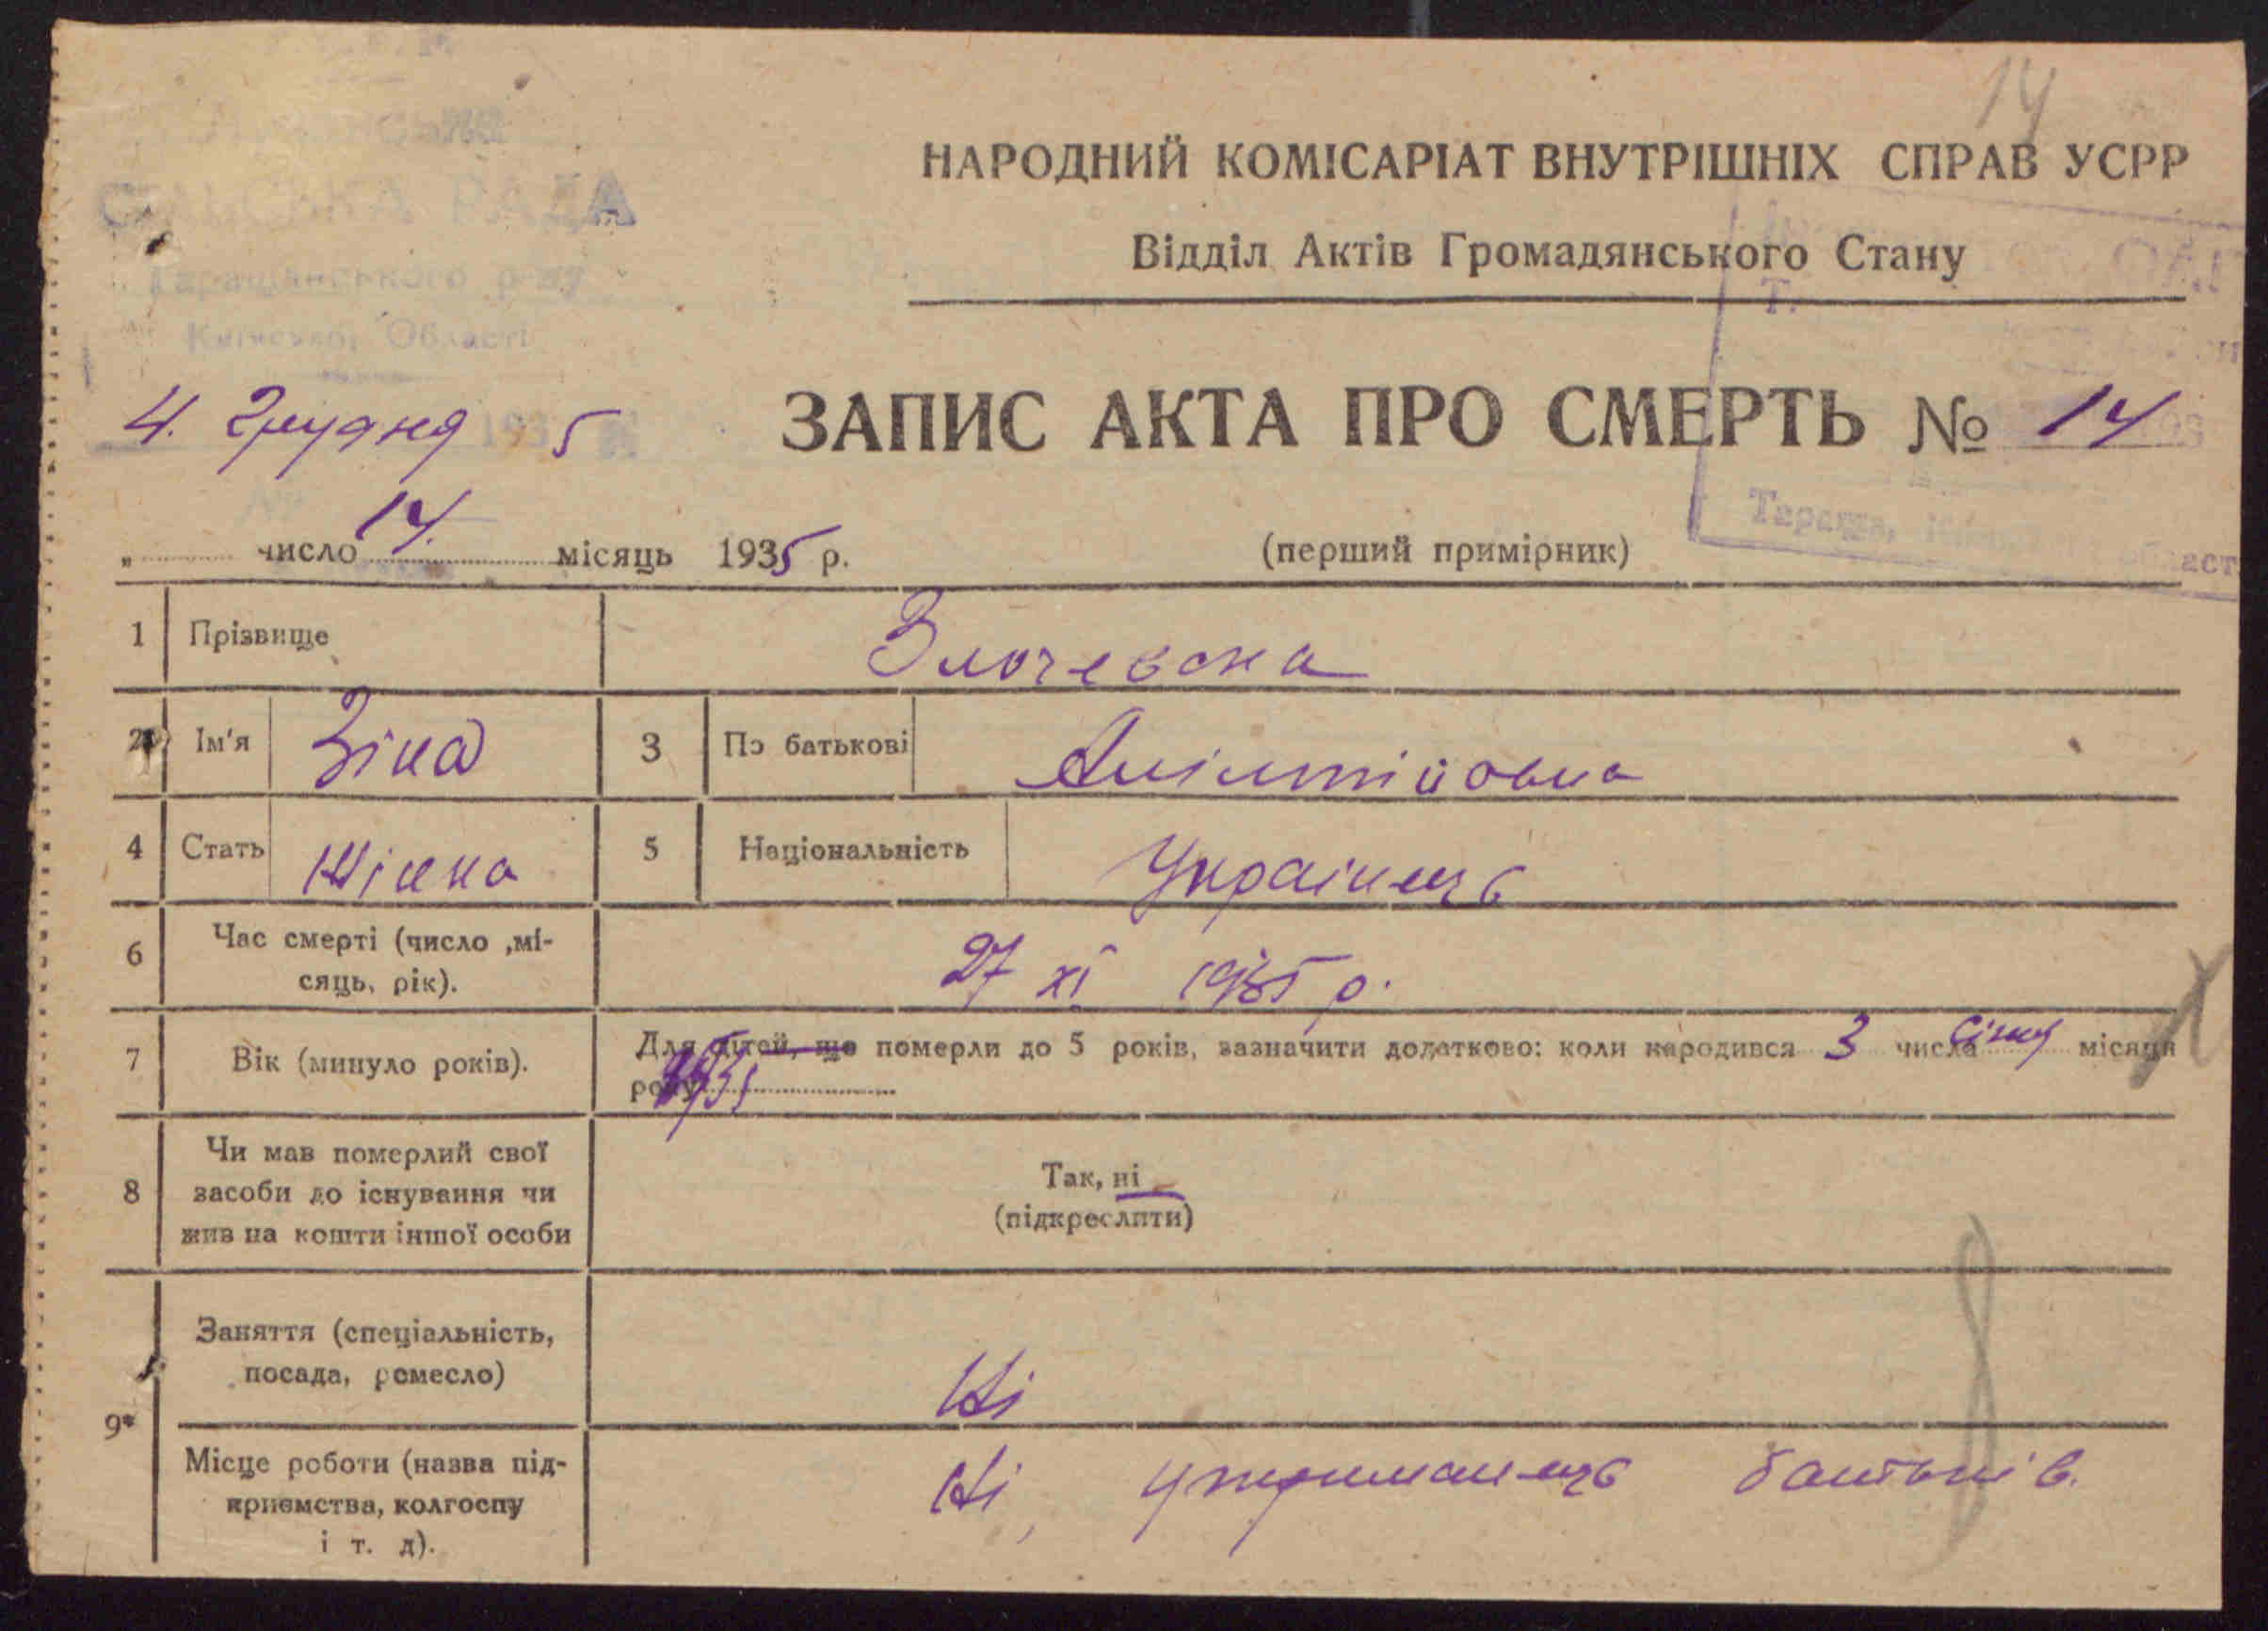 14
СІЛЬСЬКА РАДА
Таращанського р-ну
Київської Області
НАРОДНИЙ КОМІСАРІАТ ВНУТРІШНІХ СПРАВ УСРР
Відділ Актів Громадянського Стану
4. Грудня 1935
ЗАПИС АКТА ПРО СМЕРТЬ № 14
Тараща,
„ число 14. місяць 1935 р.
(перший примірник)
1 Прізвище Злочевска
2 Ім'я Зіна 3 По батькові
4 Стать Жінка 5 Національність Українець
6 Час смерті (число ,мі-
сяць, рік). 27 XI 1935 р.
7 Вік (минуло років). Для дітей, що померли до 5 років, зазначити додатково: коли народився 3 числа Січня місяця
року 1935
8 Чи мав померлий свої
засоби до існування чи
жив на кошти іншої особи
Так, ні
(підкреслити)
9* Заняття (спеціальність,
посада, ремесло) Ні
Місце роботи (назва під-
приємства, колгоспу
і т. д). Ні, утриманець батьків.